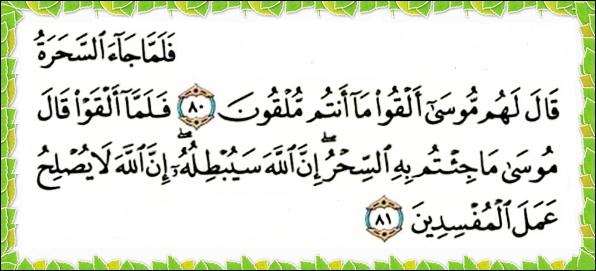 فَلَمَّا جَآءَ ٱلسَّحَرَةُ
قَالَ لَهُم مُّوسَىٰٓ أَلْقُوا۟ مَآ أَنتُم مُّلْقُونَ ٨٠ فَلَمَّآ أَلْقَوْا۟ قَالَ
مُوسَىٰ مَا جِئْتُم بِهِ ٱلسِّحْرُ ۖ إِنَّ ٱللَّهَ سَيُبْطِلُهُۥٓ ۖ إِنَّ ٱللَّهَ لَا يُصْلِحُ
عَمَلَ ٱلْمُفْسِدِينَ ٨١